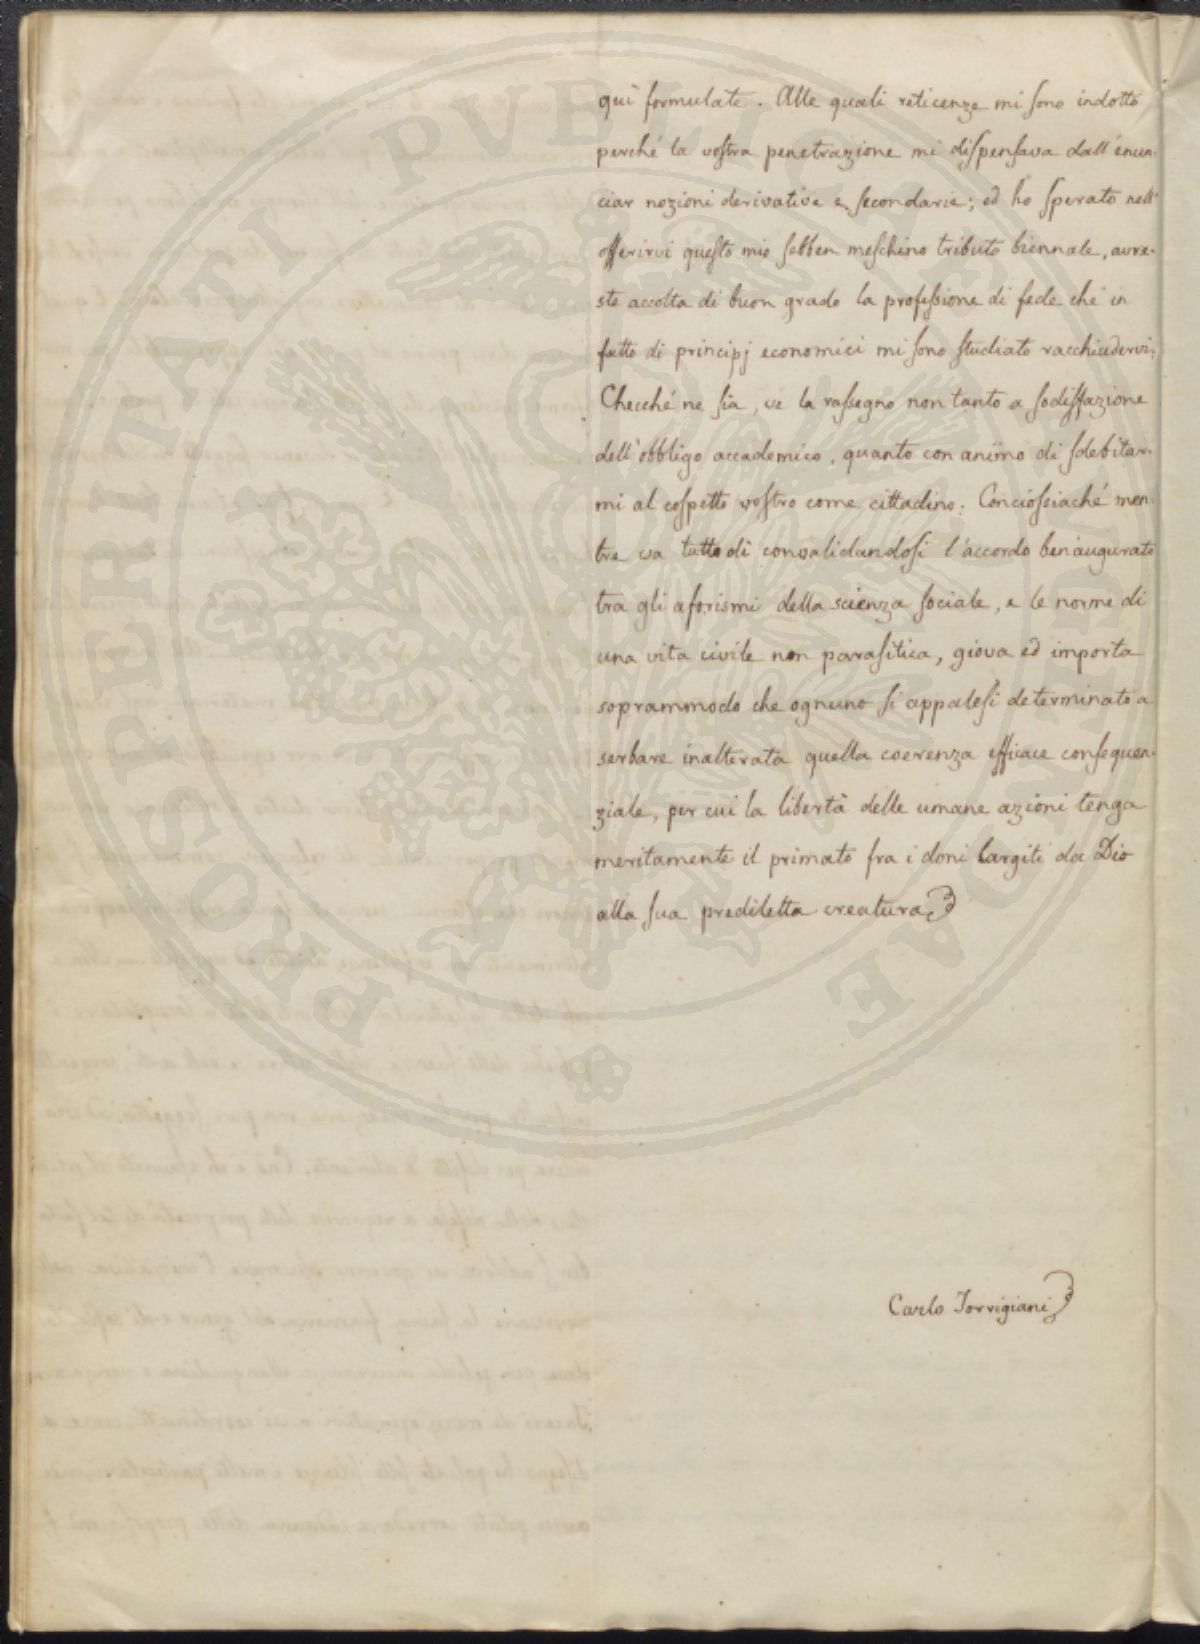 qui formulate. Alle quali reticenze mi sono indotto
perché la vostra penetrazione mi dispensava dall'enun-
ciar nozioni derivative e secondarie; ed ho sperato nell'
offerirvi questo mio sebben meschino tributo biennale, avre-
ste accolta di buon grado la professione di fede che in
fatto di principj economici mi sono studiato racchiudervi.
Checché ne sia, ve la rassegno non tanto a sodisfazione
dell'obbligo accademico, quanto con animo di sdebitar-
mi al cospetto vostro come cittadino: Conciossiaché men-
tre va tutto dì convalidandosi l'accordo benaugurato
tra gli aforismi della scienza sociale, e le norme di
una vita civile non parasitica, giova ed importa
soprammodo che ognuno si appalesi determinato a
serbare inalterata quella coerenza efficace conseguen-
ziale, per cui la libertà delle umane azioni tenga
meritamente il primato fra i doni largiti da Dio
alla sua prediletta creatura
Carlo Torrigiani
PROSPERITATI PUBLICAE AUGENDAE